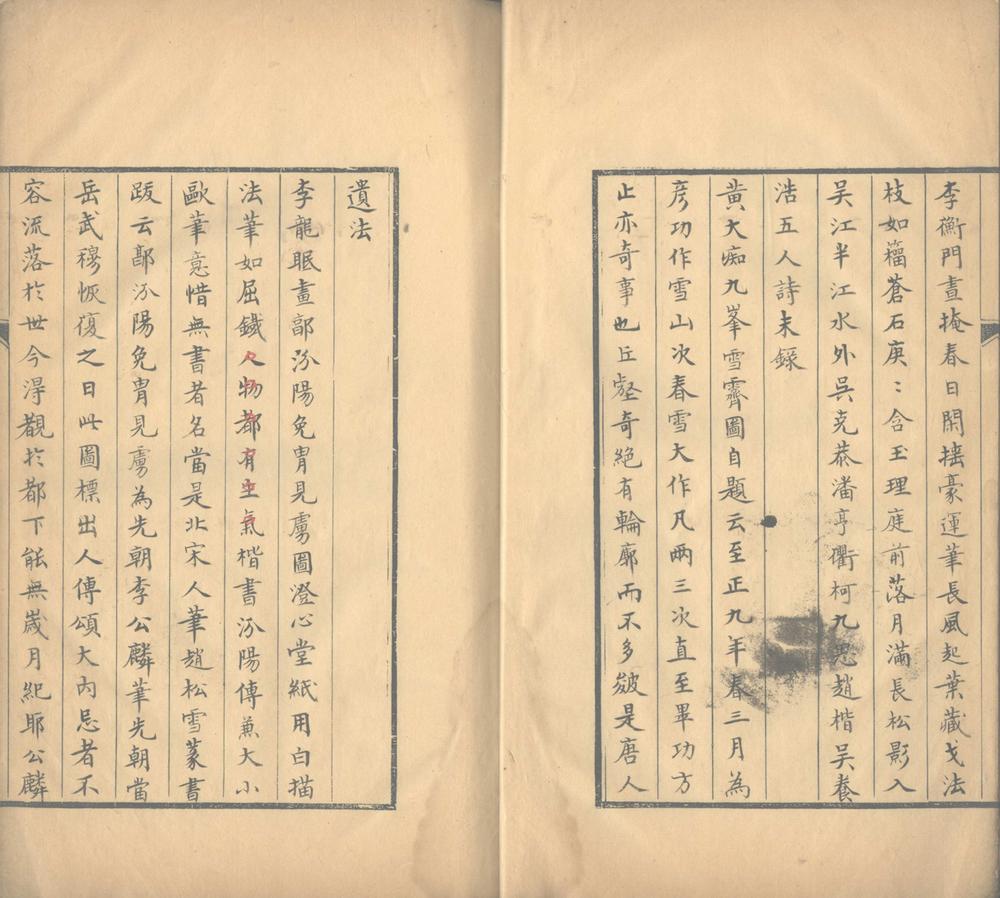 李衡門晝掩春日閑揺豪運筆長風起葉藏戈法
枝如籕蒼石庚〻含玉理庭前落月滿長松影入
吴江半江水外吳克恭潘亨衢柯九思趙楷吴養
浩五人詩未錄
黄大痴九峯雪霽圖自題云至正九年春三月為
彦功作雪山次春雪大作凡两三次直至畢功方
止亦奇事也丘壑奇絶有輪廓而不多皴是唐人
遺法
李龍眠畫郭汾陽免胄見虜圖澄心堂紙用白描
法筆如屈鐵人物都有生氣楷書汾陽傳兼大小
歐筆意惜無書者名當是北宋人筆趙松雪篆書
跋云郭汾陽免胄見虜為先朝李公麟筆先朝當
岳武穆恢復之日此圖標出人傳頌大内忌者不
容流落於世今得觀於都下能無歲月紀耶公麟